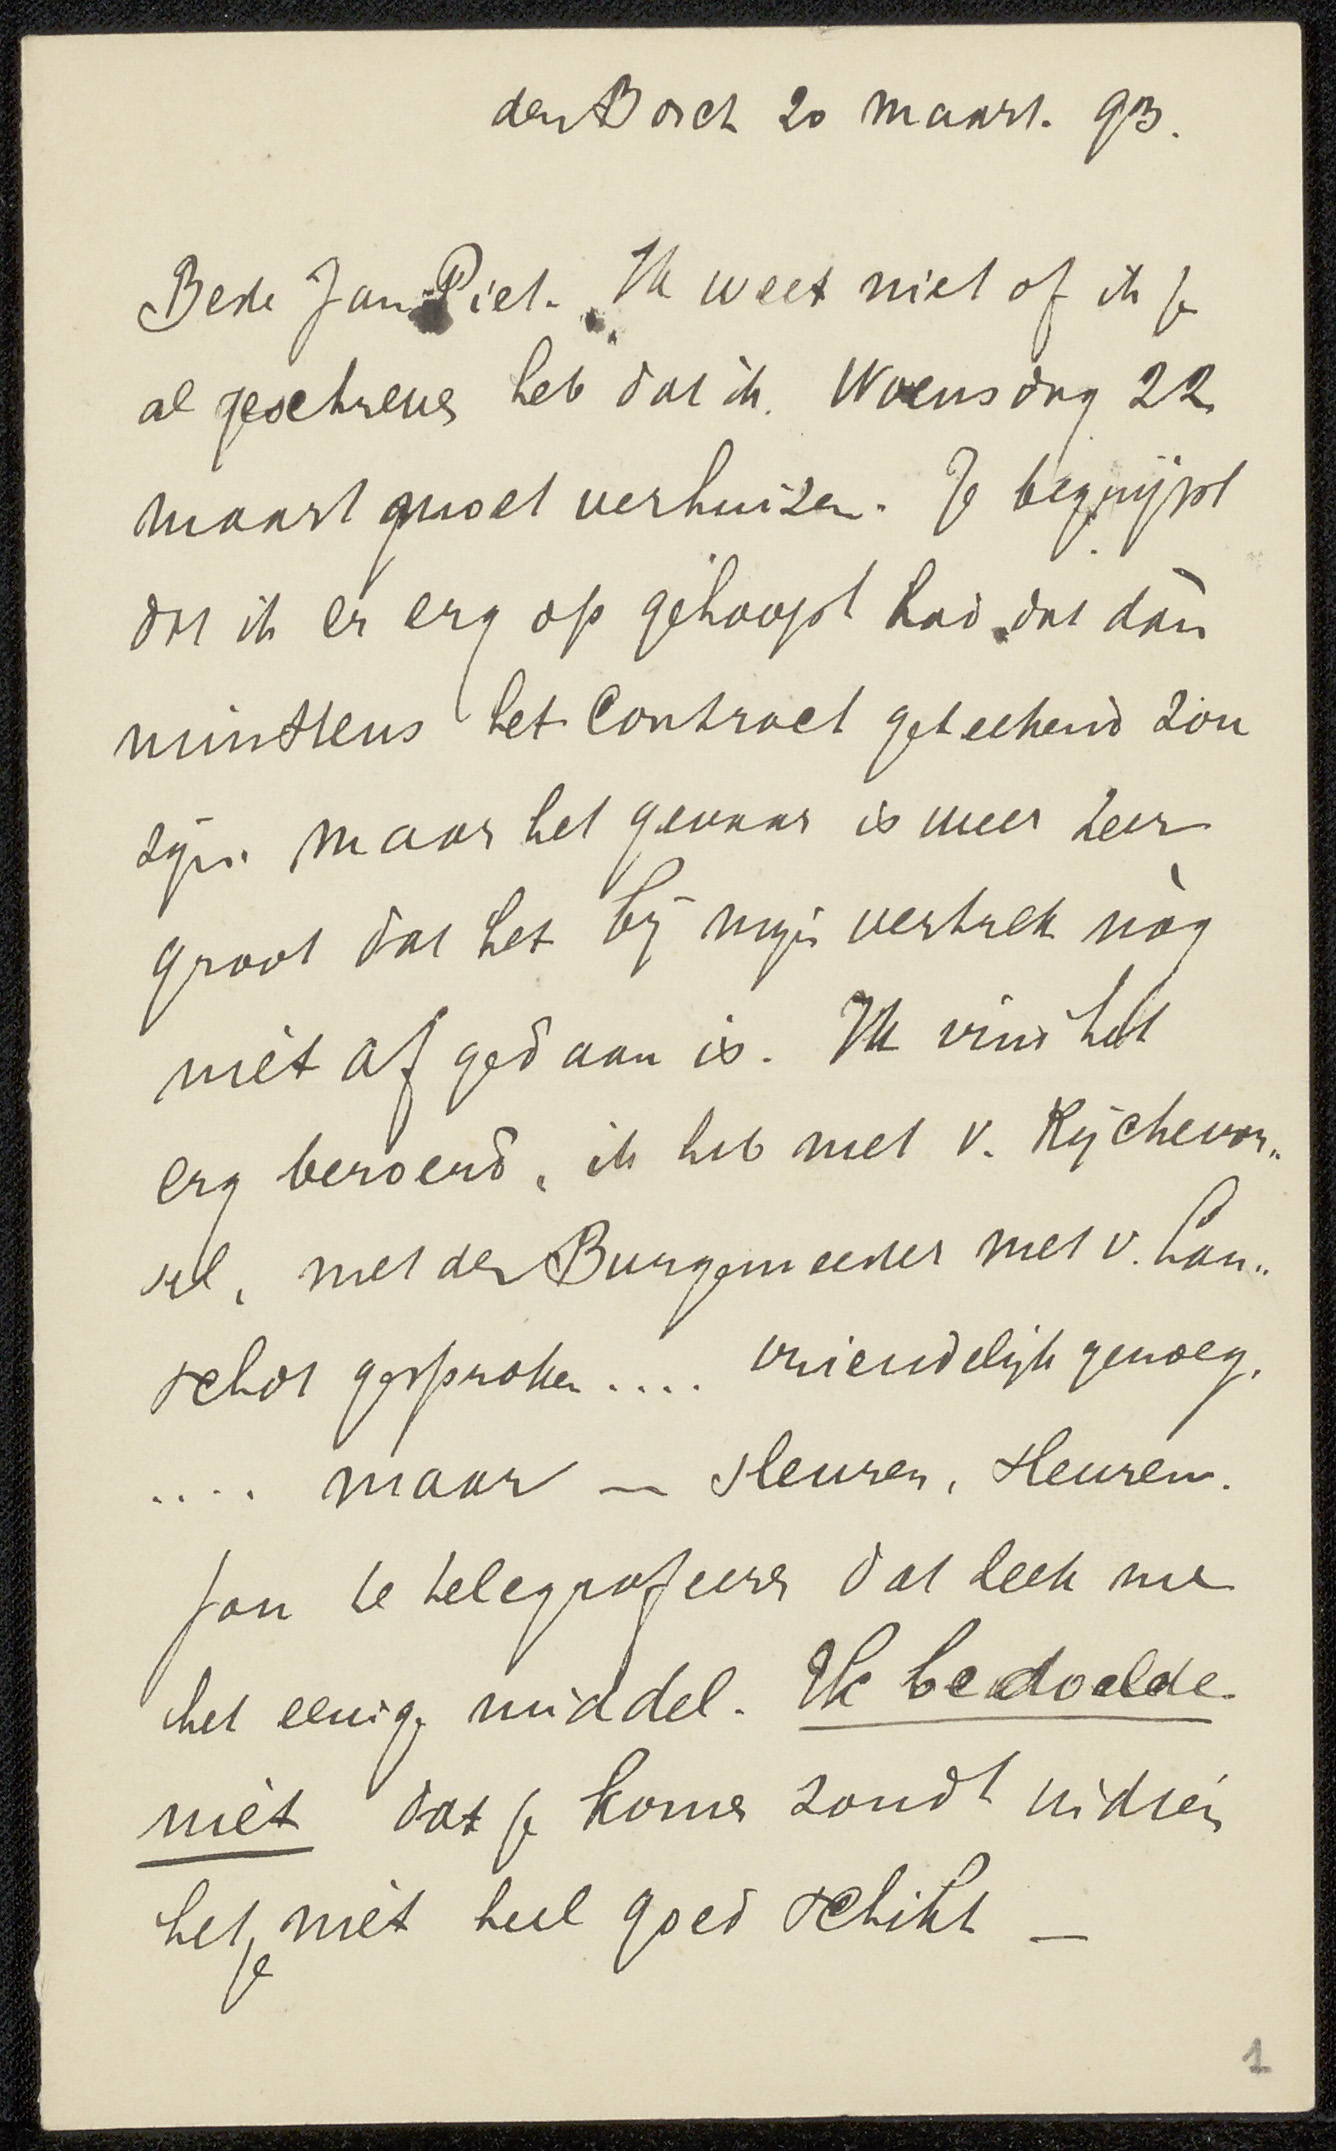 den Bosch 20 Maart. 93.
Beste Jan Piet. Ik weet niet of ik je
al geschreven heb dat ik Woensdag 22
Maart moet verhuizen. Je begrijpt
dat ik er erg op gehoopt had dat dàn
minstens het Contract geteekend zou
zijn. Maar het gevaar is weer zeer
groot dat het bij mijn vertrek nòg
niet af gedaan is. Ik vind het
erg beroerd, ik heb met v. Rijckevor„
sel, met den Burgemeester met v. Lan„
schot gesproken .... vriendelijk genoeg.
.... maar — sleuren, sleuren.
Jou te telegrafeeren dat leek me
het eenige middel. Ik bedoelde
nièt dat je komen zoudt indien
het je nièt heel goed schikt —
1